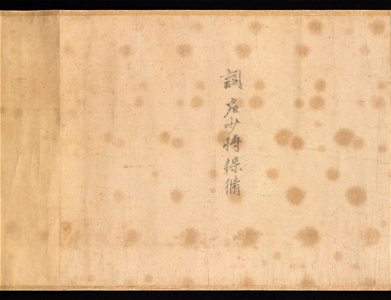 詞右少将保備